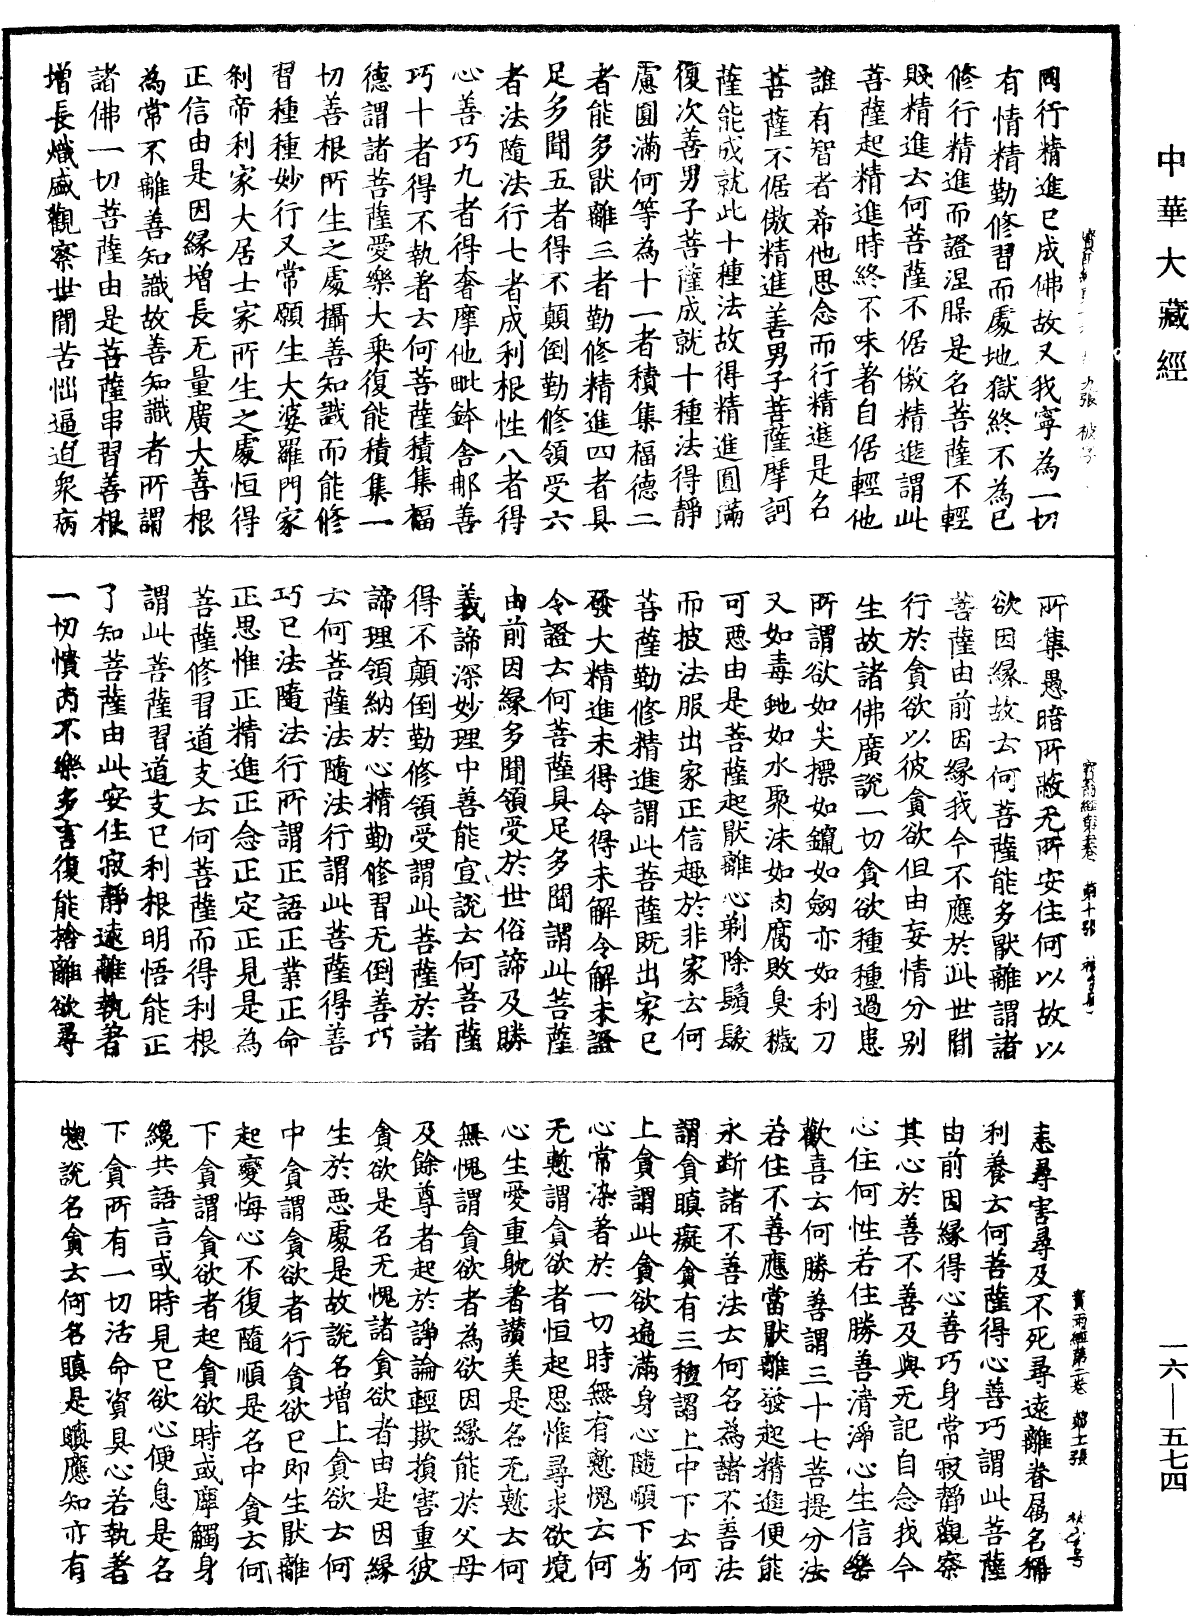 中華大藏經
同行精進已成佛故又我寧為一切
有情精勤修習而處地獄終不為已
修行精進而證涅槃是名菩薩不輕
賤精進去何菩薩不倨傲精進謂此
菩薩起精進時終不味著自倨輕他
誰有智者希他思念而行精進是名
菩薩不倨傲精進善男子菩薩摩訶
薩能成就此十種法故得精進圓滿
復次善男子菩薩成就十種法得靜
慮圓滿何等為十一者積集福德二
者能多猒離三者勤修精進四者具
足多聞五者得不顛倒勤修領受六
者法隨法行七者成利根性八者得
心善巧九者得奢摩他毗鉢舍那善
巧十者得不執著去何菩薩積集福
德謂諸菩薩愛樂大乘復能積集一
切善根所生之處攝善知識而能修
習種種妙行又常願生大婆羅門家
剎帝利家大居士家所生之處恒得
正信由是因緣增長无量廣大善根
為常不離善知識故善知識者所謂
諸佛一切菩薩由是菩薩串習善根
增長熾盛觀察世間苦惱逼迫眾病
所集愚暗所蔽无所安住何以故以
欲因緣故去何菩薩能多猒離謂諸
菩薩由前因緣我今不應於此世間
行於貪欲以彼貪欲但由妄情分別
生故諸佛廣說一切貪欲種種過患
所謂欲如尖摽如鑹如劒亦如利刀
又如毒虵如水聚沫如肉腐敗臭穢
可惡由是菩薩起猒離心剃除鬚髮
而披法服出家正信趣於非家去何
菩薩勤修精進謂此菩薩既出家已
發大精進未得令得未解令解未證
令證去何菩薩具足多聞謂此菩薩
由前因緣多聞領受於世俗諦及勝
義諦深妙理中善能宣說去何菩薩
得不顛倒勤修領受謂此菩薩於諸
諦理領納於心精勤修習无倒善巧
去何菩薩法隨法行謂此菩薩得善
巧已法隨法行所謂正語正業正命
正思惟正精進正念正定正見是為
菩薩修習道支去何菩薩而得利根
謂此菩薩習道支已利根明悟能正
了知菩薩由此安住寂靜遠離執著
一切憒丙不樂多言復能捨離欲尋
恚尋害尋及不死尋遠離眷屬名稱
利養去何菩薩得心善巧謂此菩薩
由前因緣得心善巧身常寂靜觀察
其心於善不善及與无記自念我今
心住何性若住勝善清淨心生信樂
歡喜去何勝善謂三十七菩提分法
若住不善應當猒離發起精進便能
永斷諸不善法去何名為諸不善法
謂貪瞋癡貪有三種謂上中下去何
上貪謂此貪欲遍滿身心隨順下劣
心常染著於一切時無有慙愧去何
无慙謂貪欲者恒起思惟尋求欲境
心生愛重躭著讚美是名无慙去何
無愧謂貪欲者為欲因緣能於父母
及餘尊者起於諍論輕欺損害重彼
貪欲是名无愧諸貪欲者由是因緣
生於惡處是故說名增上貪欲去何
中貪謂貪欲者行貪欲已即生猒離
起變悔心不復隨順是名中貪去何
下貪謂貪欲者起貪欲時或摩觸身
纔共語言或時見已欲心便息是名
下貪所有一切活命資具心若執著
揔說名貪去何名瞋是瞋應知亦有
寶雨經第二卷
一六—五七四